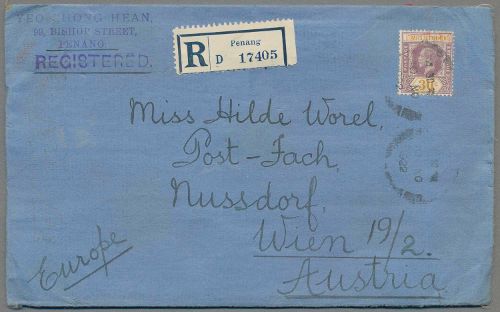 YEO CHONG HEAN,
99, BISHOP STREET,
PENANG
REGISTERED.
R
Penang
D 17405
Miss Hilde Worel,
Post-Fach,
Nussdorf,
Wien 19/2.
Austria
Europe